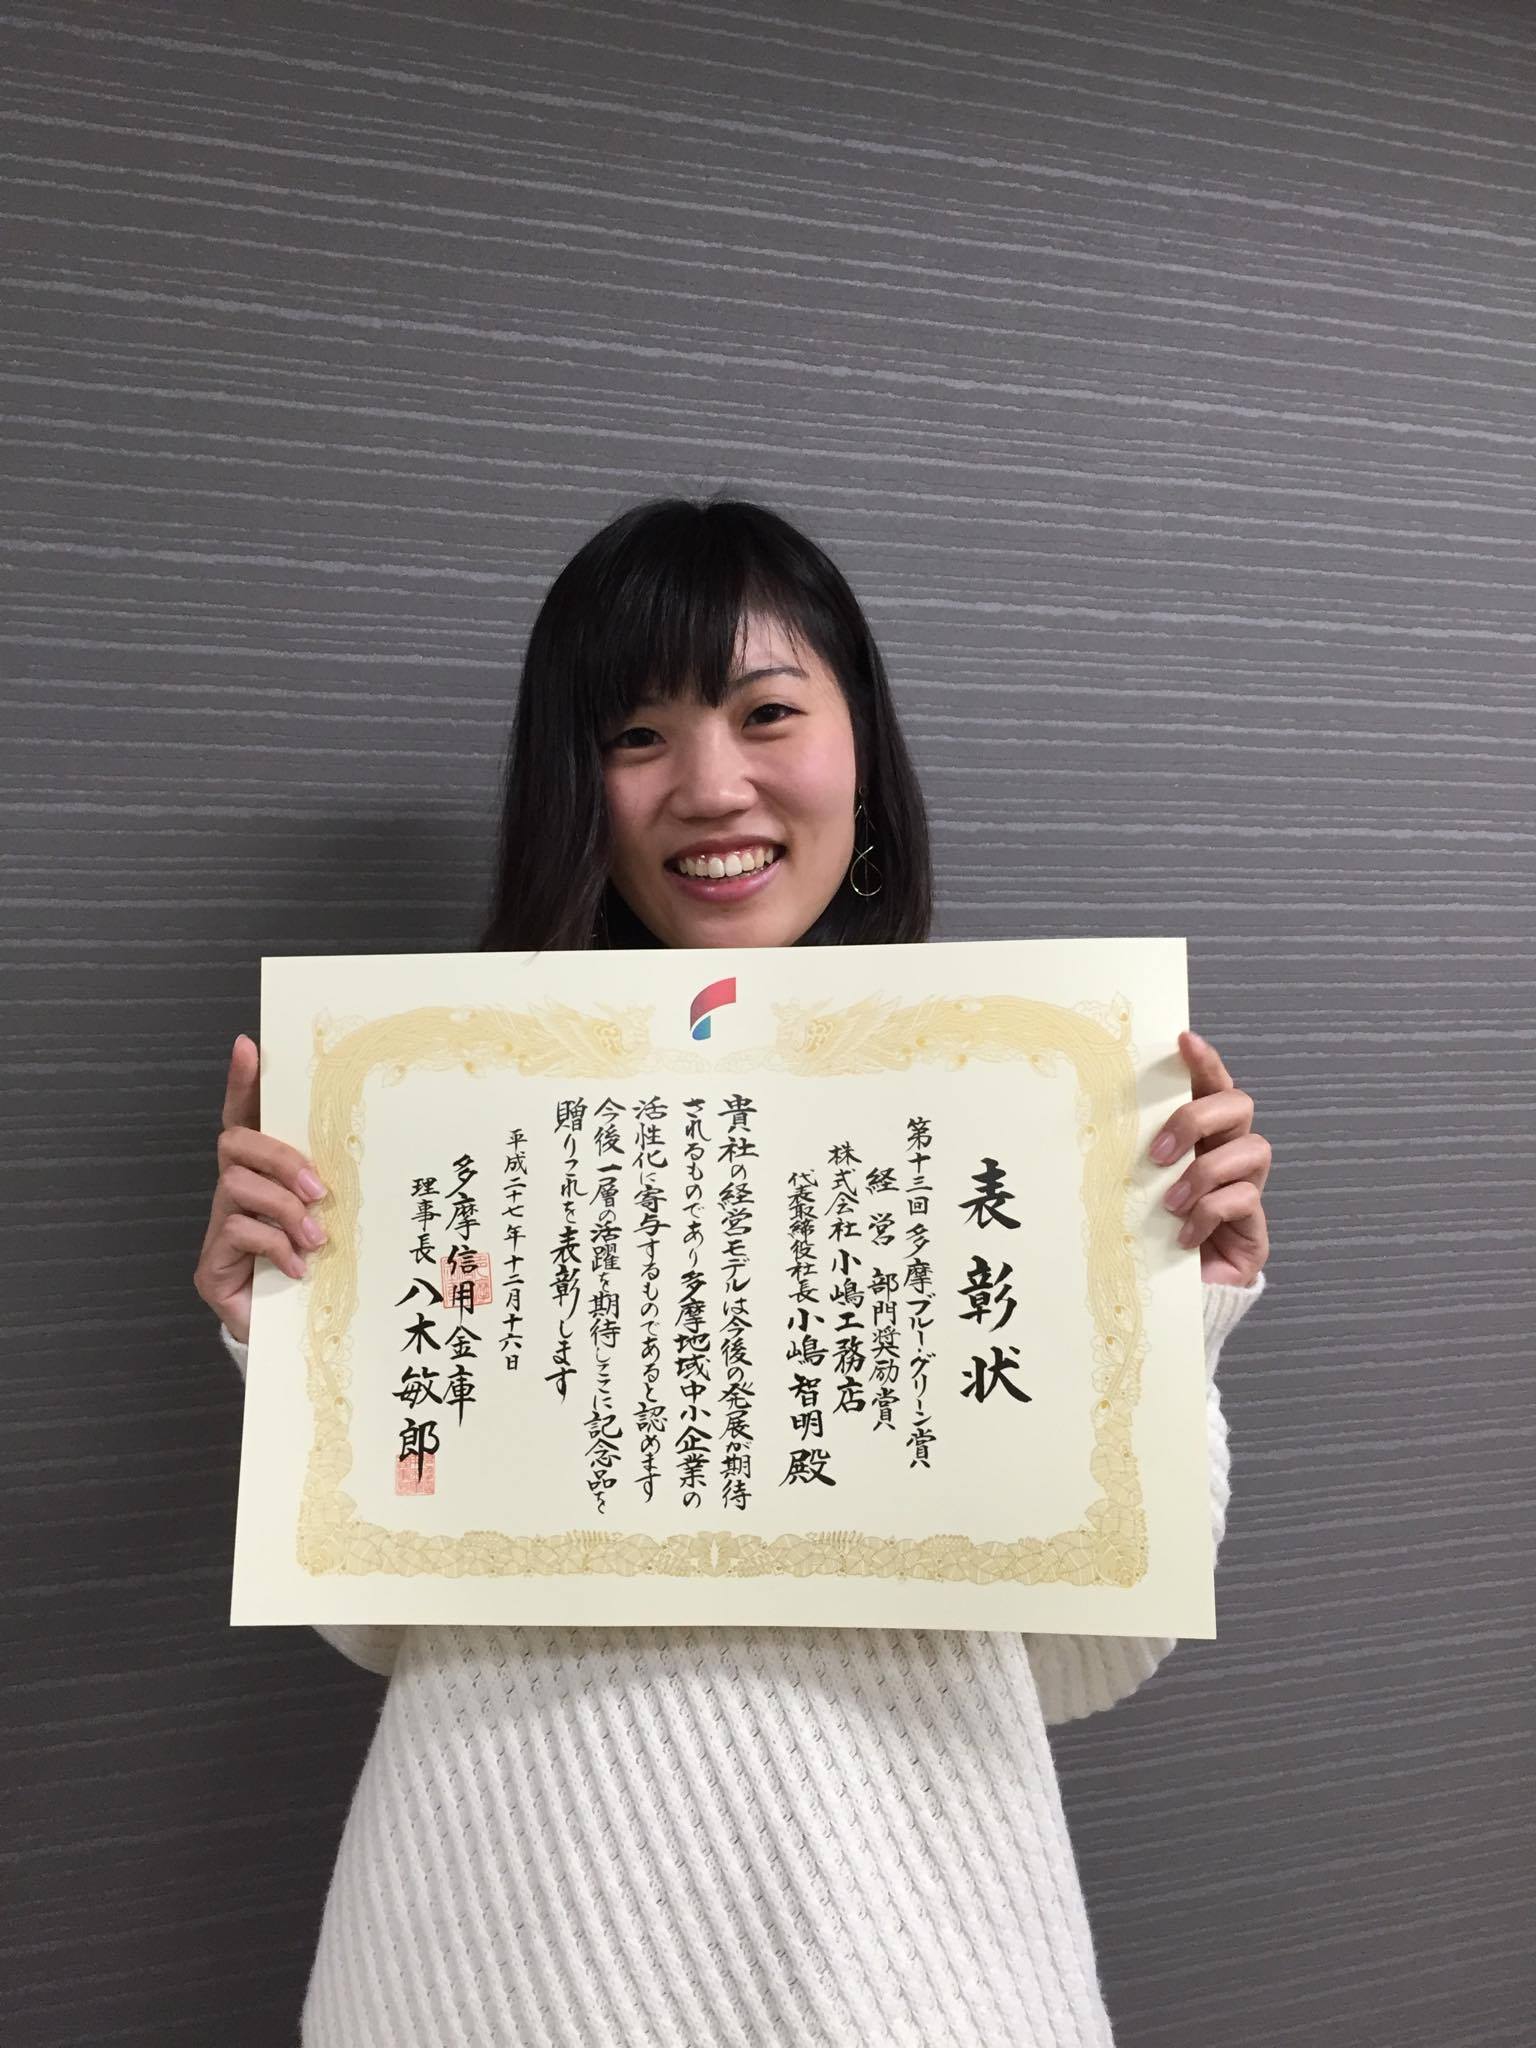 表彰状
第十三回多摩ブルー・グリーン賞
経営部門奨励賞
株式会社小嶋工務店
代表取締役社長小嶋智明殿
貴社の経営モデルは今後の発展が期待
されるものであり多摩地域中小企業の
活性化に寄与するものであると認めます
今後一層の活躍を期待しここに記念品を
贈りこれを表彰します
平成二十七年十二月十六日
多摩信用金庫
理事長八木敏郎